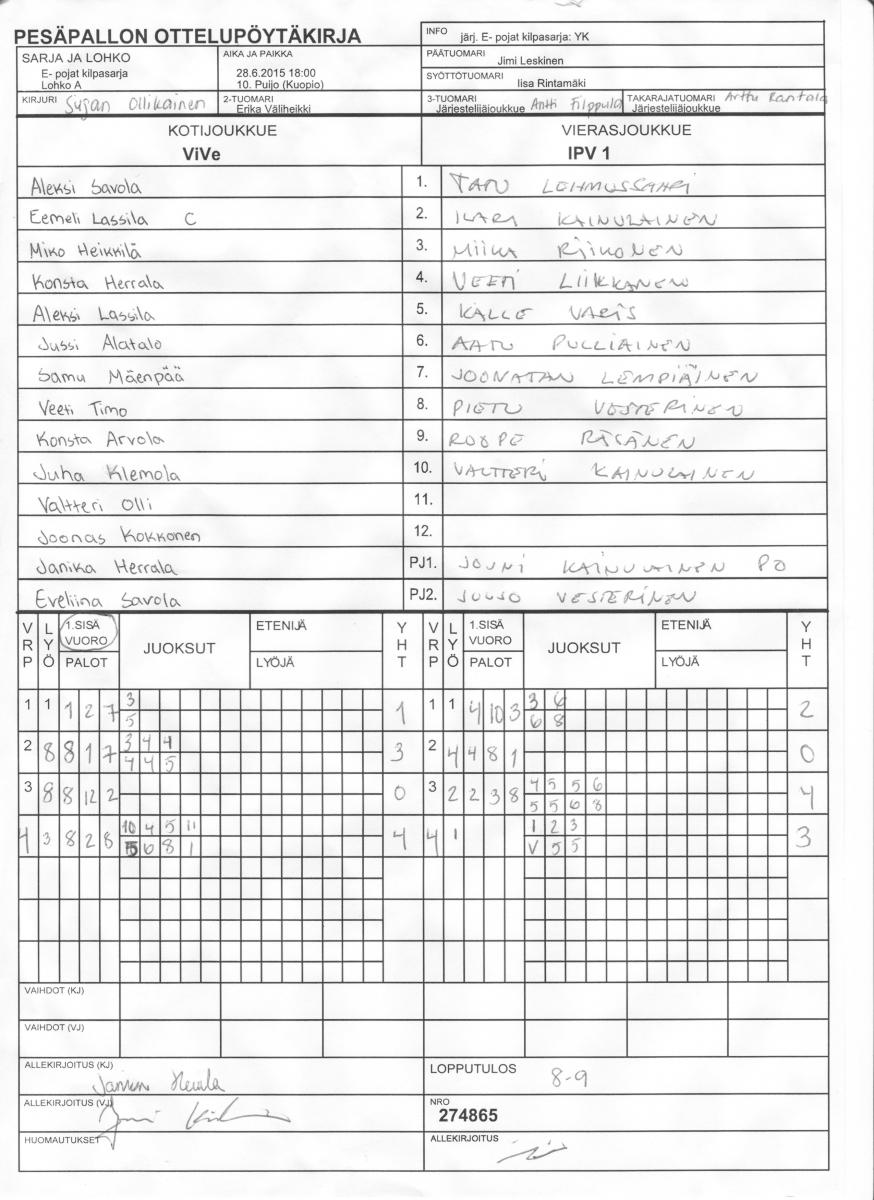 PESÄPALLON OTTELUPÖYTÄKIRJA
INFO järj. E- pojat kilpasarja: YK
SARJA JA LOHKO
E- pojat kilpasarja
Lohko A
AIKA JA PAIKKA
28.6.2015 18:00
10. Puijo (Kuopio)
PÄÄTUOMARI Jimi Leskinen
SYÖTTÖTUOMARI Iisa Rintamäki
KIRJURI Ollikainen
2-TUOMARI
Erika Väliheikki
3-TUOMARI
Järjestelijäjoukkue Antti Filppula
TAKARAJATUOMARI
Järjestelijäjoukkue Arttu Rantala
KOTIJOUKKUE
ViVe
VIERASJOUKKUE
IPV 1
Aleksi Savola 1. TATU LEHMUSSAARI
Eemeli Lassila C 2. ILARI KAINULAINEN
Miko Heikkilä 3. MIIKA RÄIKÖNEN
Konsta Herrala 4. VEETI LIIKKANEN
Aleksi Lassila 5. KALLE VARIS
Jussi Alatalo 6. AATU PULLIAINEN
Samu Mäenpää 7. JOONATAN LEMPIÄINEN
Veeti Timo 8. PIETU VESTERINEN
Konsta Arvola 9. ROOPE RÄSÄNEN
Juha Klemola 10. VALTTERI KAINULAINEN
Valtteri Olli 11.
Joonas Kokkonen 12.
Janika Herrala PJ1. JOUNI KAINULAINEN PO
Eveliina Savola PJ2. JUUSO VESTERINEN
VRP LYÖ 1.SISÄ VUORO PALOT JUOKSUT ETENIJÄ LYÖJÄ YHT VRP LYÖ 1.SISÄ VUORO PALOT JUOKSUT ETENIJÄ LYÖJÄ YHT
1 1 1 2 7 3 1 1 1 4 10 3 3 6 2
5 6 8
2 8 8 1 7 3 4 4 3 2 4 4 8 1 0
4 4 5
3 8 8 12 2 0 3 2 2 3 8 4 5 5 6 4
5 5 6 8
4 3 8 2 8 10 4 5 11 4 4 1 1 2 3 3
5 6 8 1 V 5 5
VAIHDOT (KJ)
VAIHDOT (VJ)
ALLEKIRJOITUS (KJ)
LOPPUTULOS 8-9
ALLEKIRJOITUS (VJ)
NRO
274865
HUOMAUTUKSET
ALLEKIRJOITUS